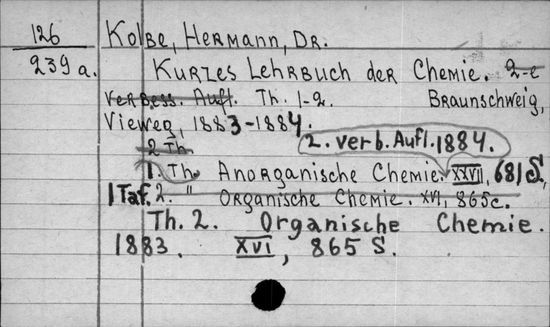 126 Kolbe, Hermann, Dr.
239 a. Kurzes Lehrbuch der Chemie. 2-e
verbess. Aufl. Th. 1-2. Braunschweig,
Vieweg, 1883-1884.
2 Th. 2. verb. Aufl. 1884.
1. Th. Anorganische Chemie. XXVII, 681 S.,
1 Taf. 2. " Organische Chemie. XVI, 865 c.
Th. 2. Organische Chemie.
1883. XVI, 865 S.